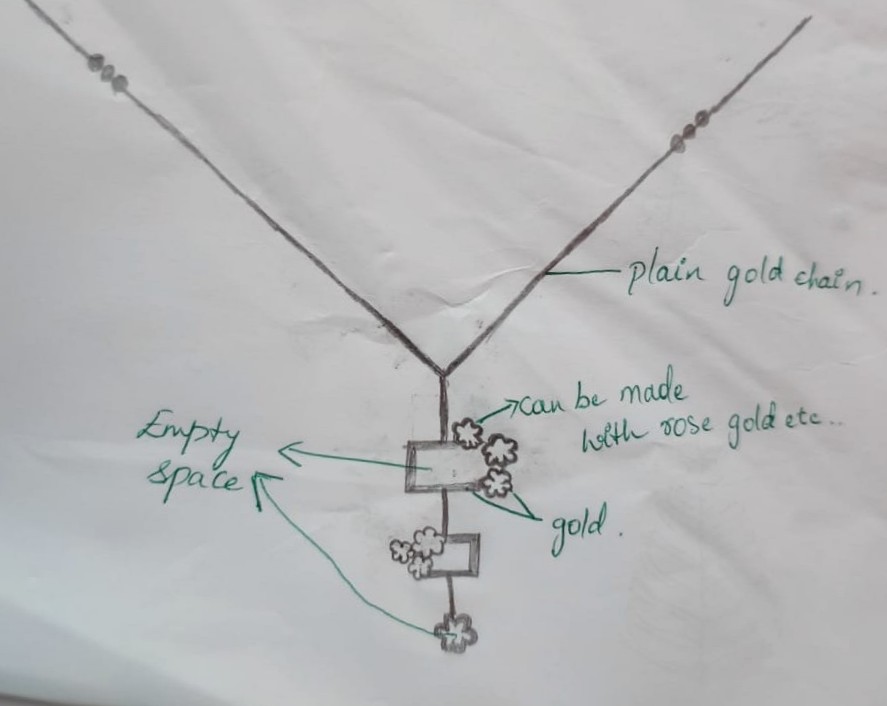 plain gold chain.
can be made
with rose gold etc..
Empty
space
gold.